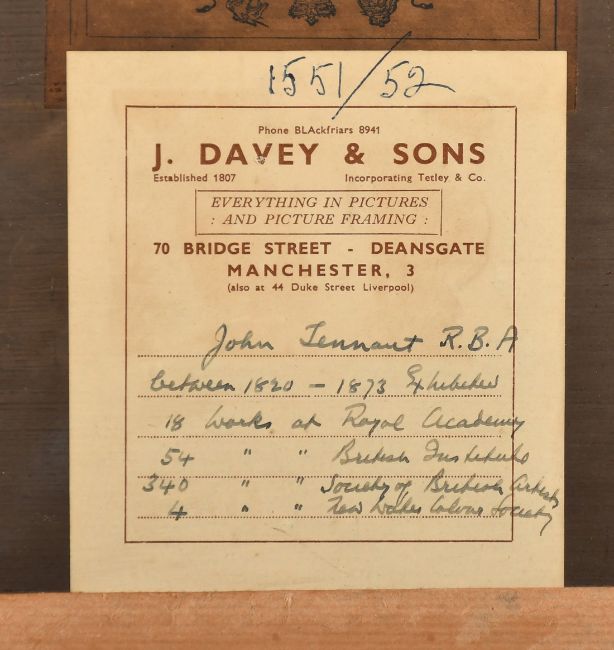 1551/52
Phone BLAckfriars 8941
J. DAVEY & SONS
Established 1807 Incorporating Tetley & Co.
EVERYTHING IN PICTURES
: AND PICTURE FRAMING :
70 BRIDGE STREET - DEANSGATE
MANCHESTER, 3
(also at 44 Duke Street Liverpool)
John Tennant R.B.A
between 1820 - 1873 Exhibited
18 works at Royal Academy
54 " " British Institute
340 " " Society of British Artists
4 " " New Water Colour Society